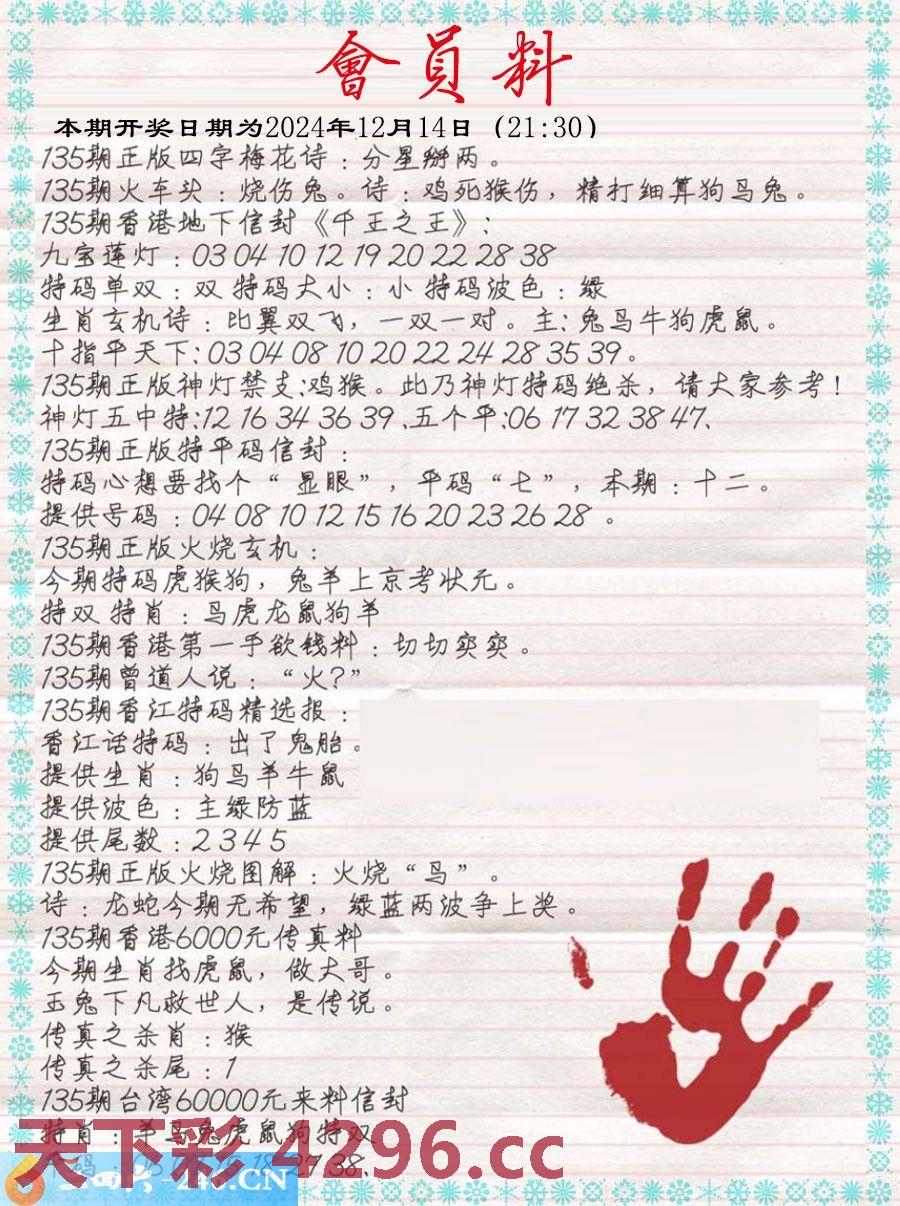 會員料
本期开奖日期为2024年12月14日（21:30）
135期正版四字梅花诗：分星掰两。
135期火车头：烧伤兔。诗：鸡死猴伤，精打细算狗马兔。
135期香港地下信封《千王之王》：
九宝莲灯：03 04 10 12 19 20 22 28 38
特码单双：双 特码大小：小 特码波色：绿
生肖玄机诗：比翼双飞，一双一对。主：兔马牛狗虎鼠。
十指平天下：03 04 08 10 20 22 24 28 35 39。
135期正版神灯禁支：鸡猴。此乃神灯特码绝杀，请大家参考！
神灯五中特：12 16 34 36 39、五个平：06 17 32 38 47、
135期正版特平码信封：
特码心想要找个“显眼”，平码“七”，本期：十二。
提供号码：04 08 10 12 15 16 20 23 26 28 。
135期正版火烧玄机：
今期特码虎猴狗，兔羊上京考状元。
特双 特肖：马虎龙鼠狗羊
135期香港第一手欲钱料：切切突突。
135期曾道人说：“火?”
135期香江特码精选报：
香江话特码：出了鬼胎。
提供生肖：狗马羊牛鼠
提供波色：主绿防蓝
提供尾数：2 3 4 5
135期正版火烧图解：火烧“马”。
诗：龙蛇今期无希望，绿蓝两波争上奖。
135期香港6000元传真料
今期生肖找虎鼠，做大哥。
玉兔下凡救世人，是传说。
传真之杀肖：猴
传真之杀尾：1
135期台湾60000元来料信封
特肖：羊马兔虎鼠狗特双
天下彩 4296.cc
38、
246.CN